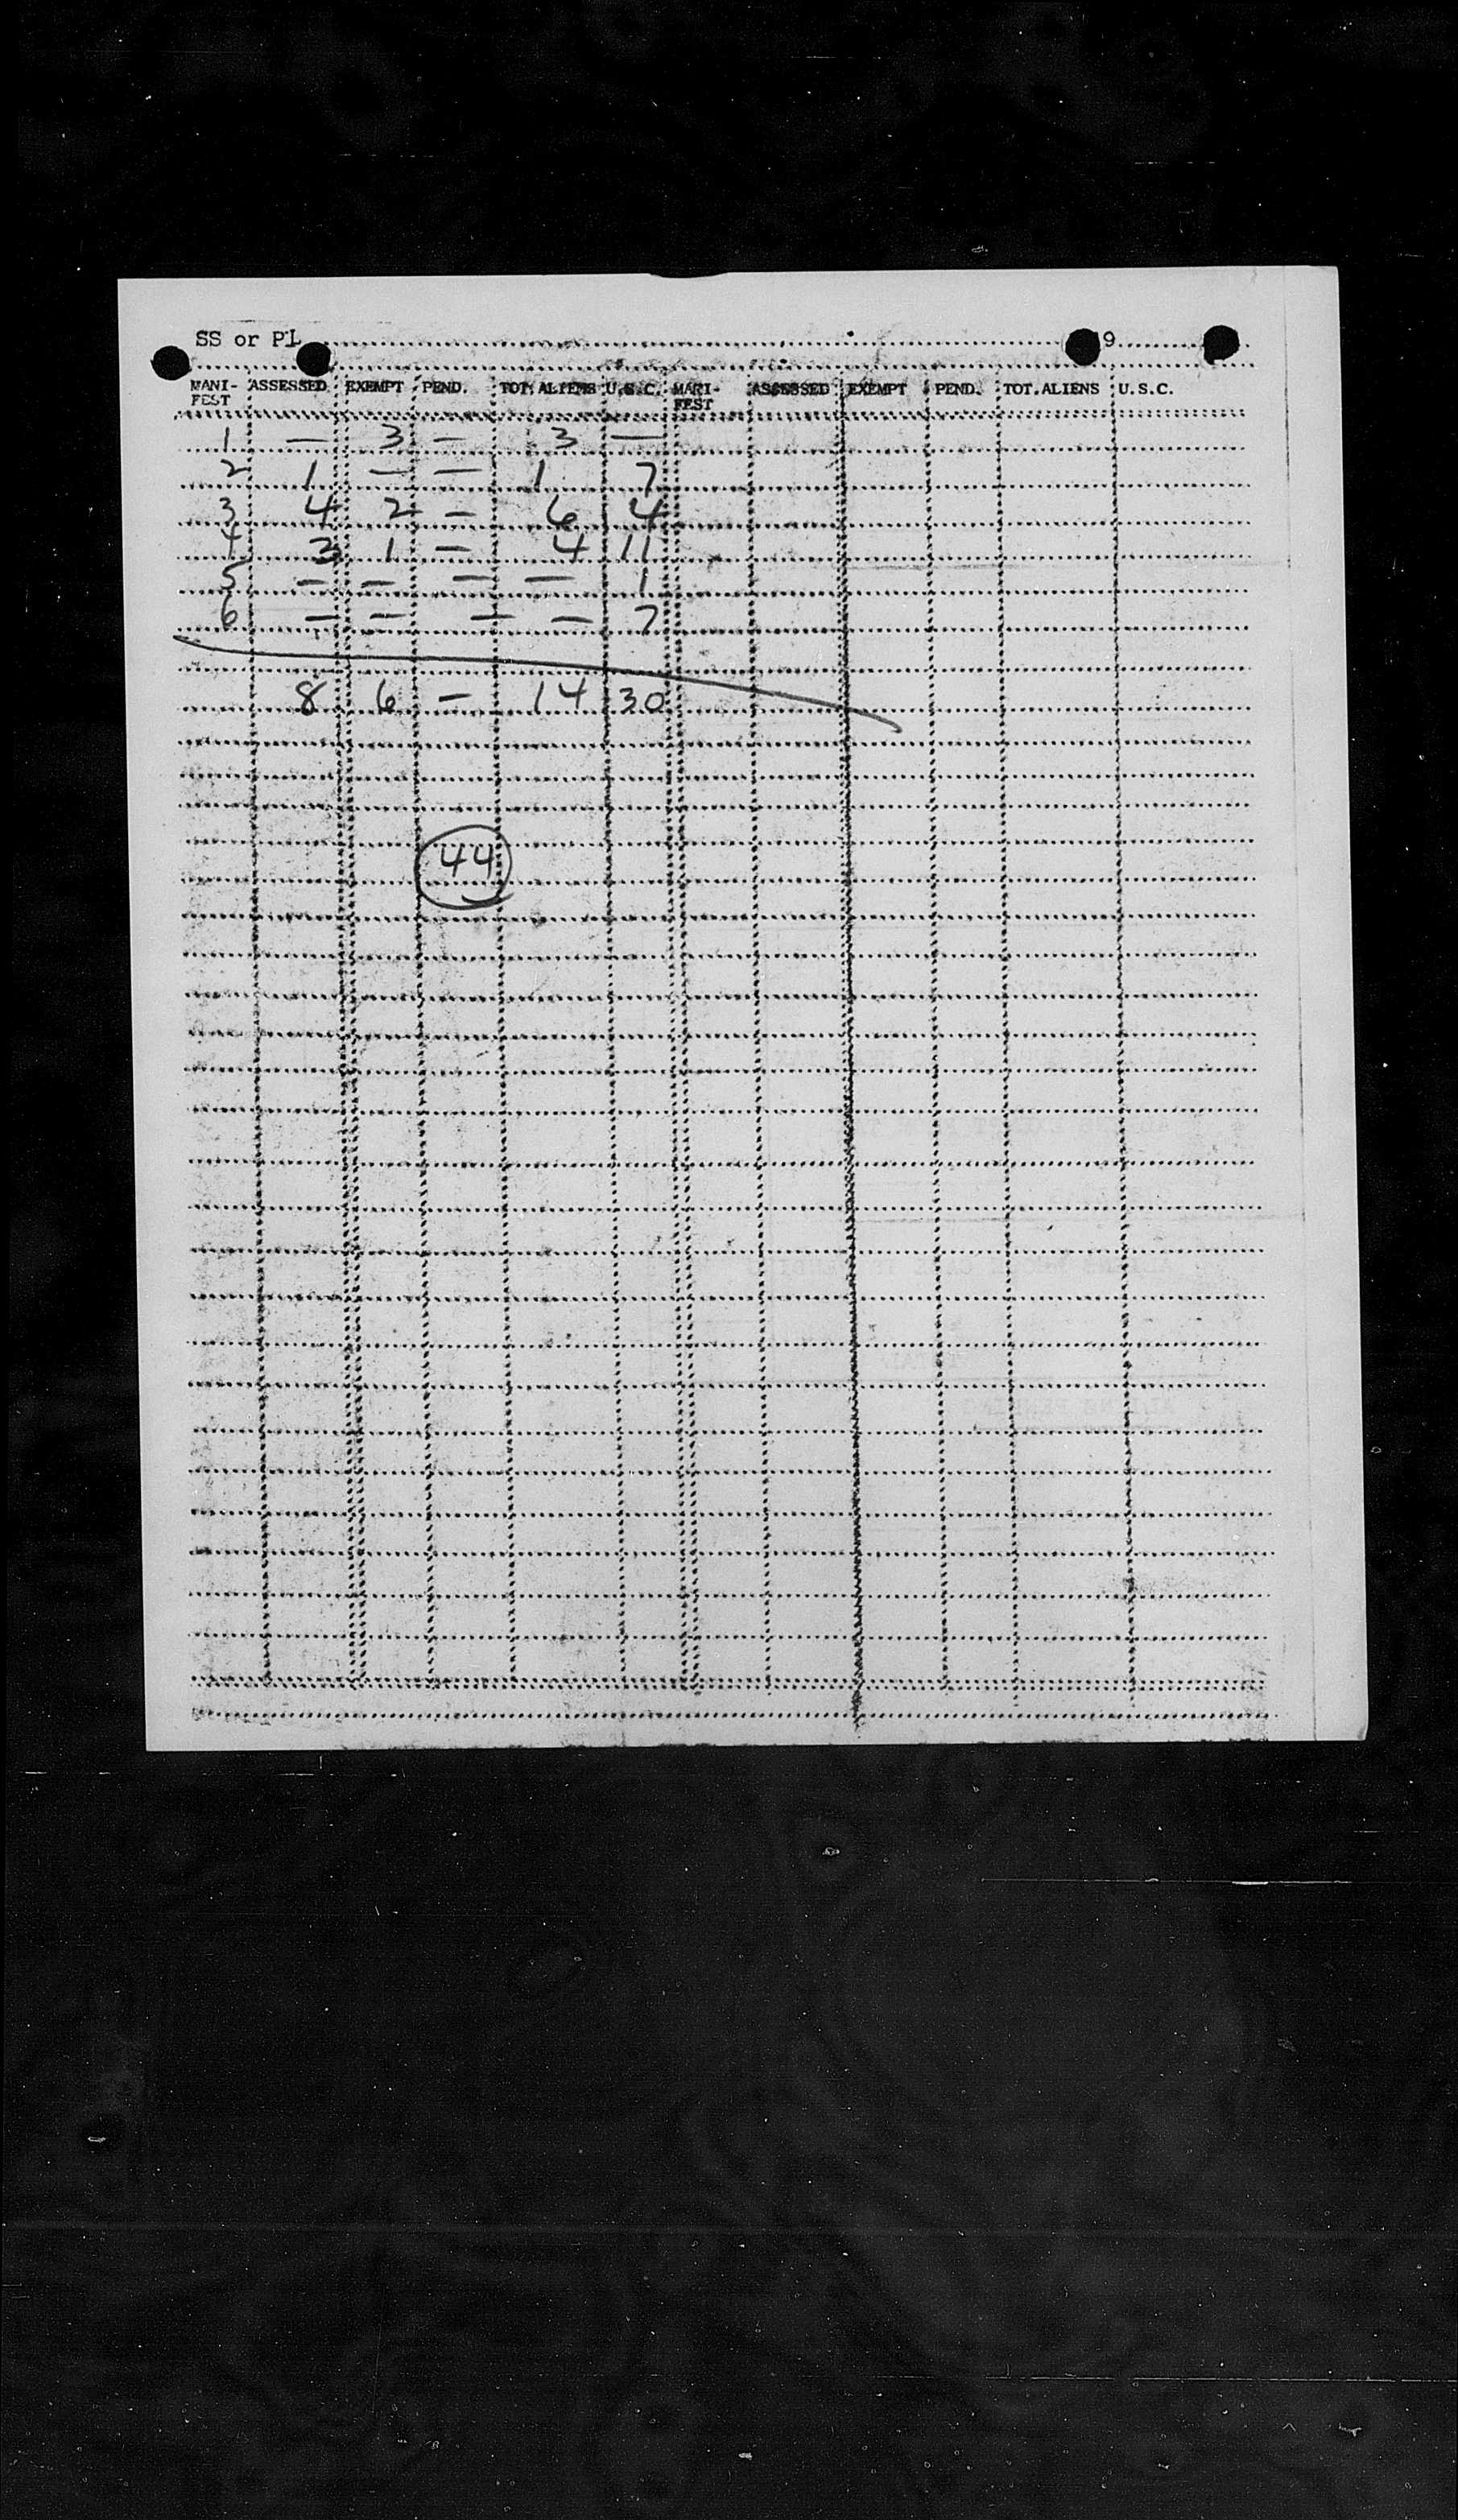 SS or Pl 9
MANI- ASSESSED EXEMPT PEND. TOT. ALIENS U.S.C. MANI- ASSESSED EXEMPT PEND. TOT. ALIENS U.S.C.
FEST FEST
1 — 3 — 3 —
2 1 — — 1 7
3 4 2 — 6 4
4 3 1 — 4 11
5 — — — — 1
6 — — — — 7
8 6 — 14 30
44